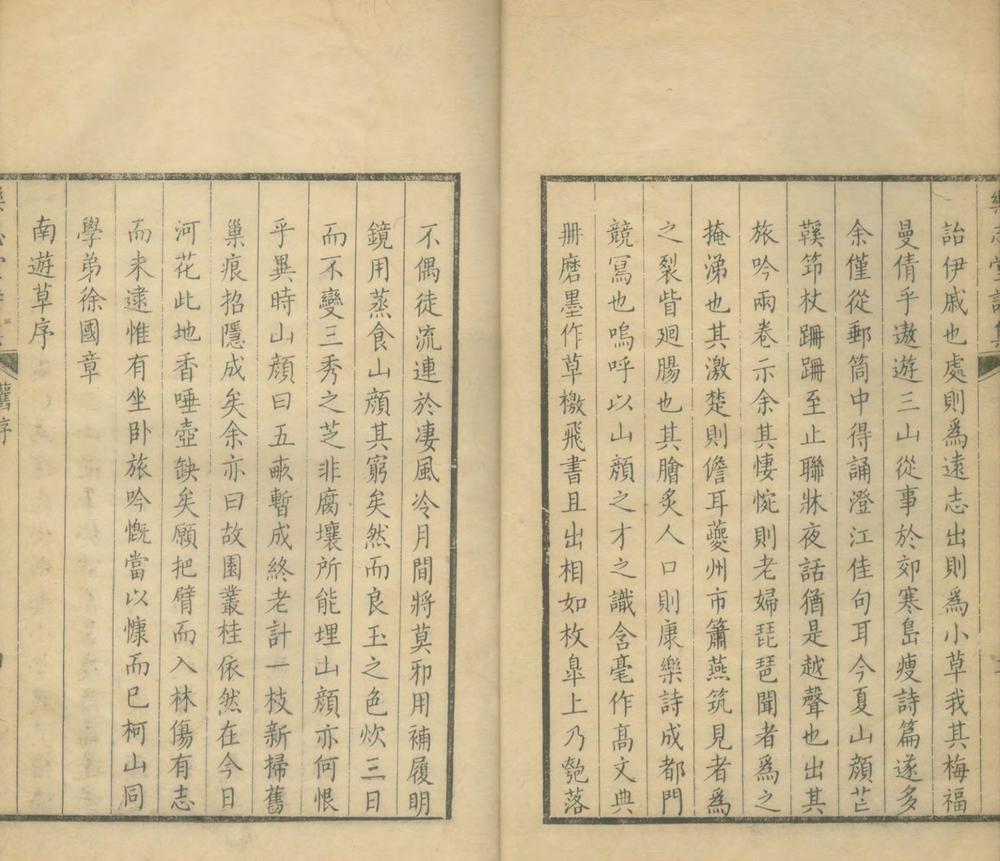 詒伊戚也處則為遠志出則為小草我其梅福
曼倩乎遨遊三山從事於郊寒島瘦詩篇遂多
余僅從郵筒中得誦澄江佳句耳今夏山顏芒
鞵笻杖跚跚至止聯牀夜話猶是越聲也出其
旅吟兩卷示余其悽惋則老婦琵琶聞者為之
掩涕也其激楚則儋耳夔州市簫燕筑見者為
之裂眥廻腸也其膾炙人口則康樂詩成都門
競冩也嗚呼以山顏之才之識含毫作高文典
冊磨墨作草檄飛書且出相如枚皐上乃匏落
不偶徒流連於凄風冷月間將莫邪用補履明
鏡用蒸食山顏其窮矣然而良玉之色炊三日
而不變三秀之芝非腐壤所能埋山顏亦何恨
乎異時山顏曰五畝暫成終老計一枝新掃舊
巢痕招隱成矣余亦曰故園叢桂依然在今日
河花此地香唾壺缺矣願把臂而入林傷有志
而未逮惟有坐卧旅吟慨當以慷而已柯山同
學弟徐國章
南遊草序
舊序